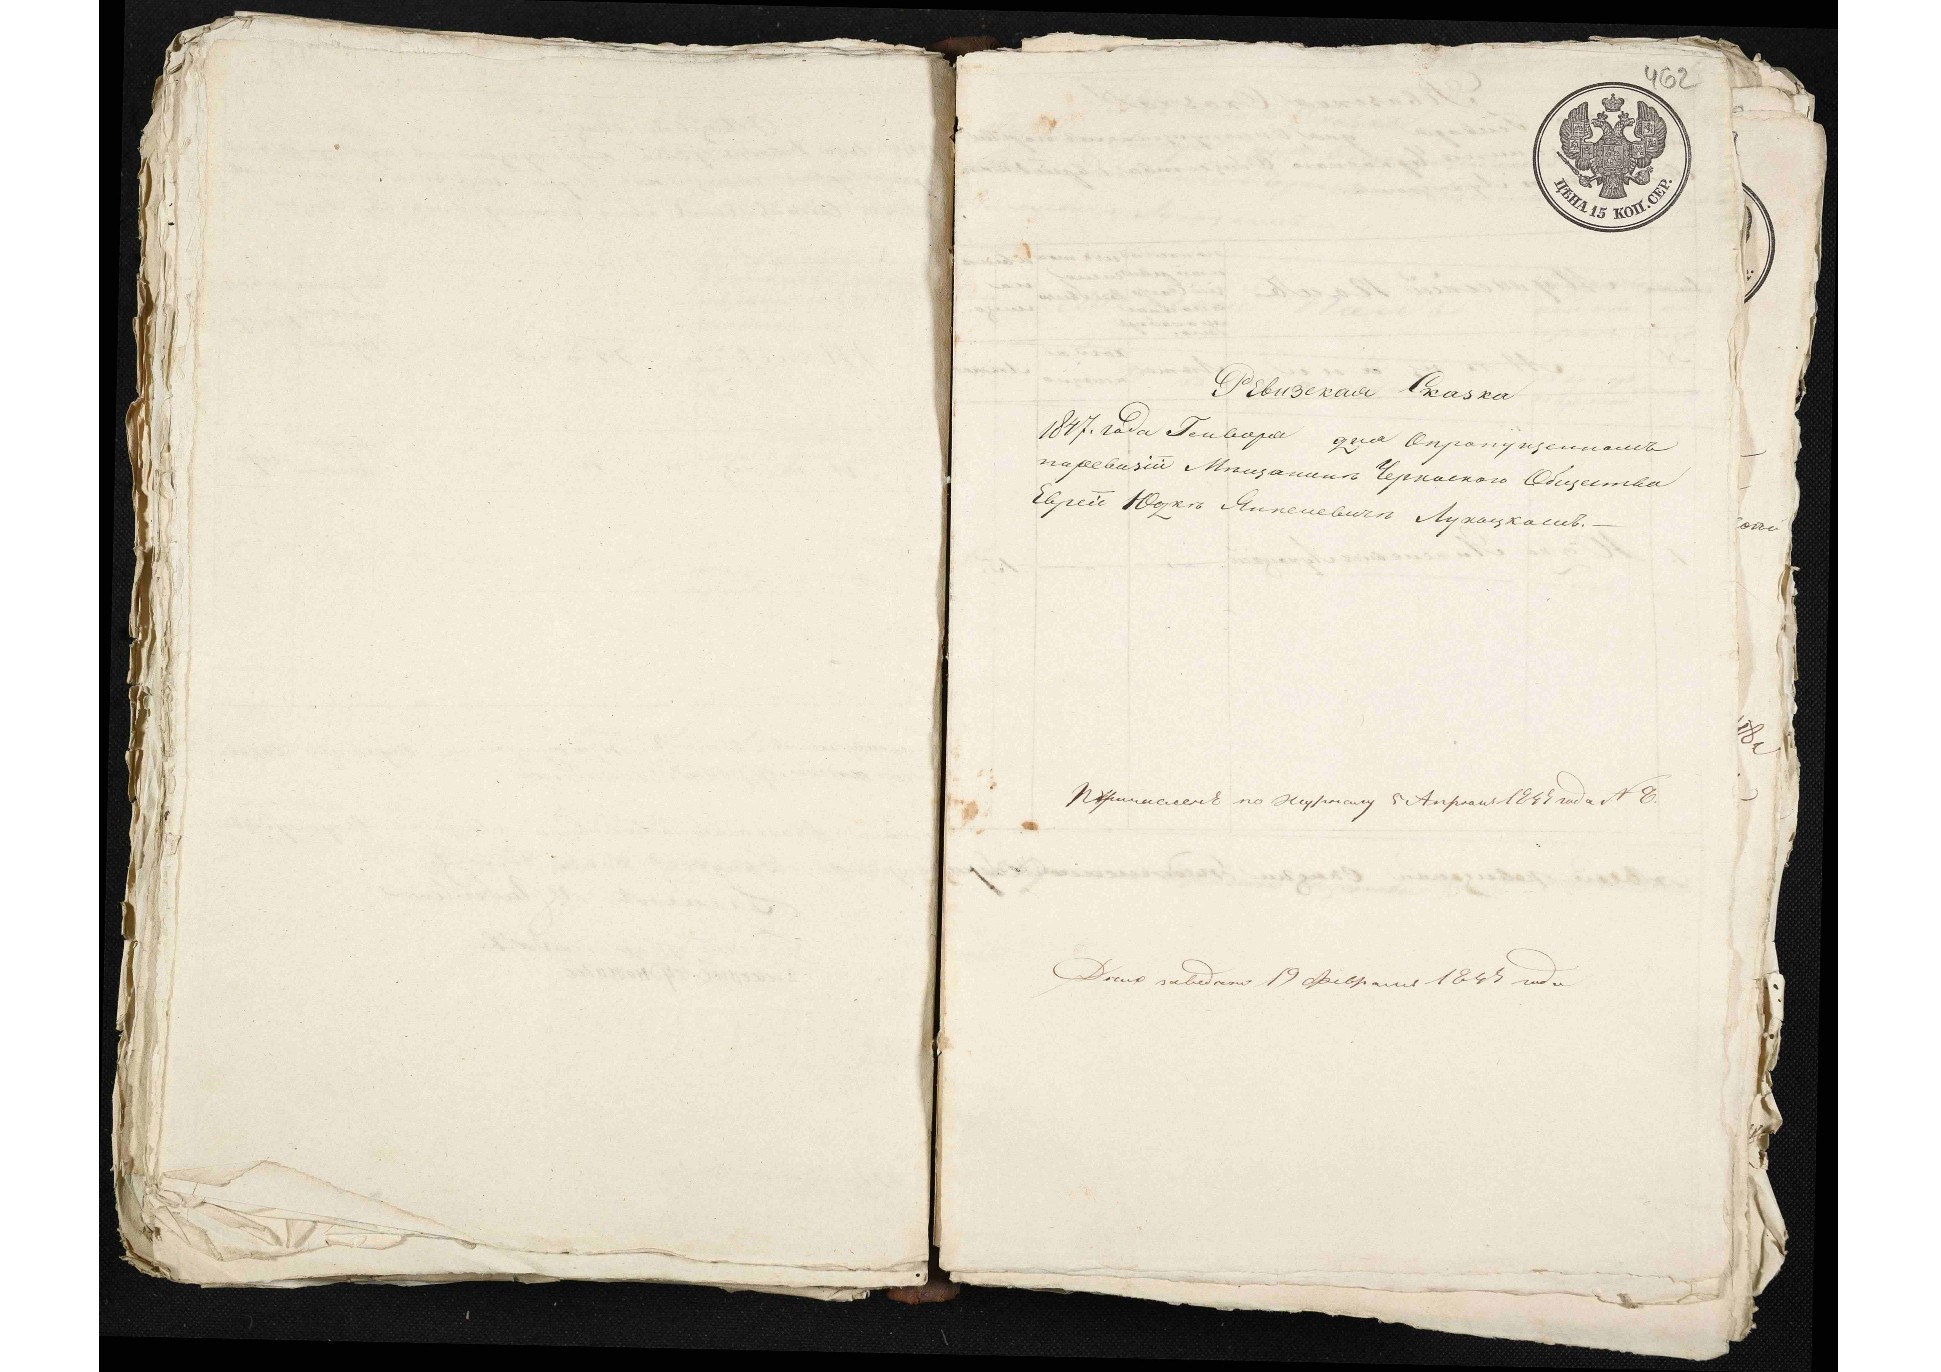 462
ЦѢНА 15 КОП. СЕР.
Ревизская Сказка
1847. года Генваря дня Опропущенномъ
паревизiи Мещанинѣ Черкаского Общества
Еврей Юдкѣ Янкелевичѣ Лукацкомъ. —
Причисленъ по журналу 5 Апреля года № 8.
Дело заведено 19 Февраля года